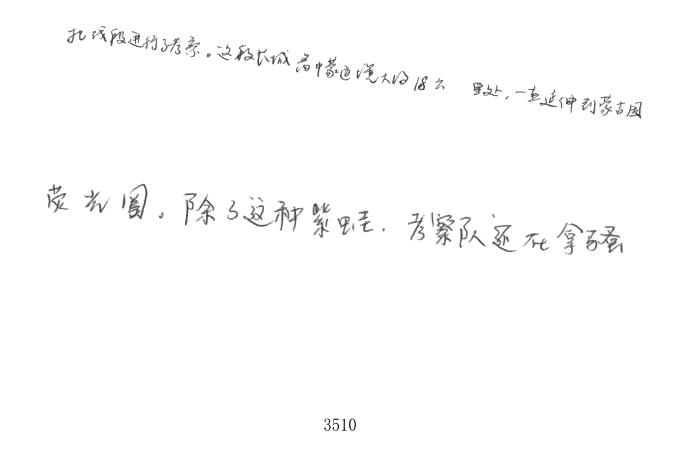 北线段进行了考察。这段长城离中蒙边境大约18公里处,一直延伸到蒙古国
荧光圈。除了这种紫蛙,考察队还在拿骚
3510